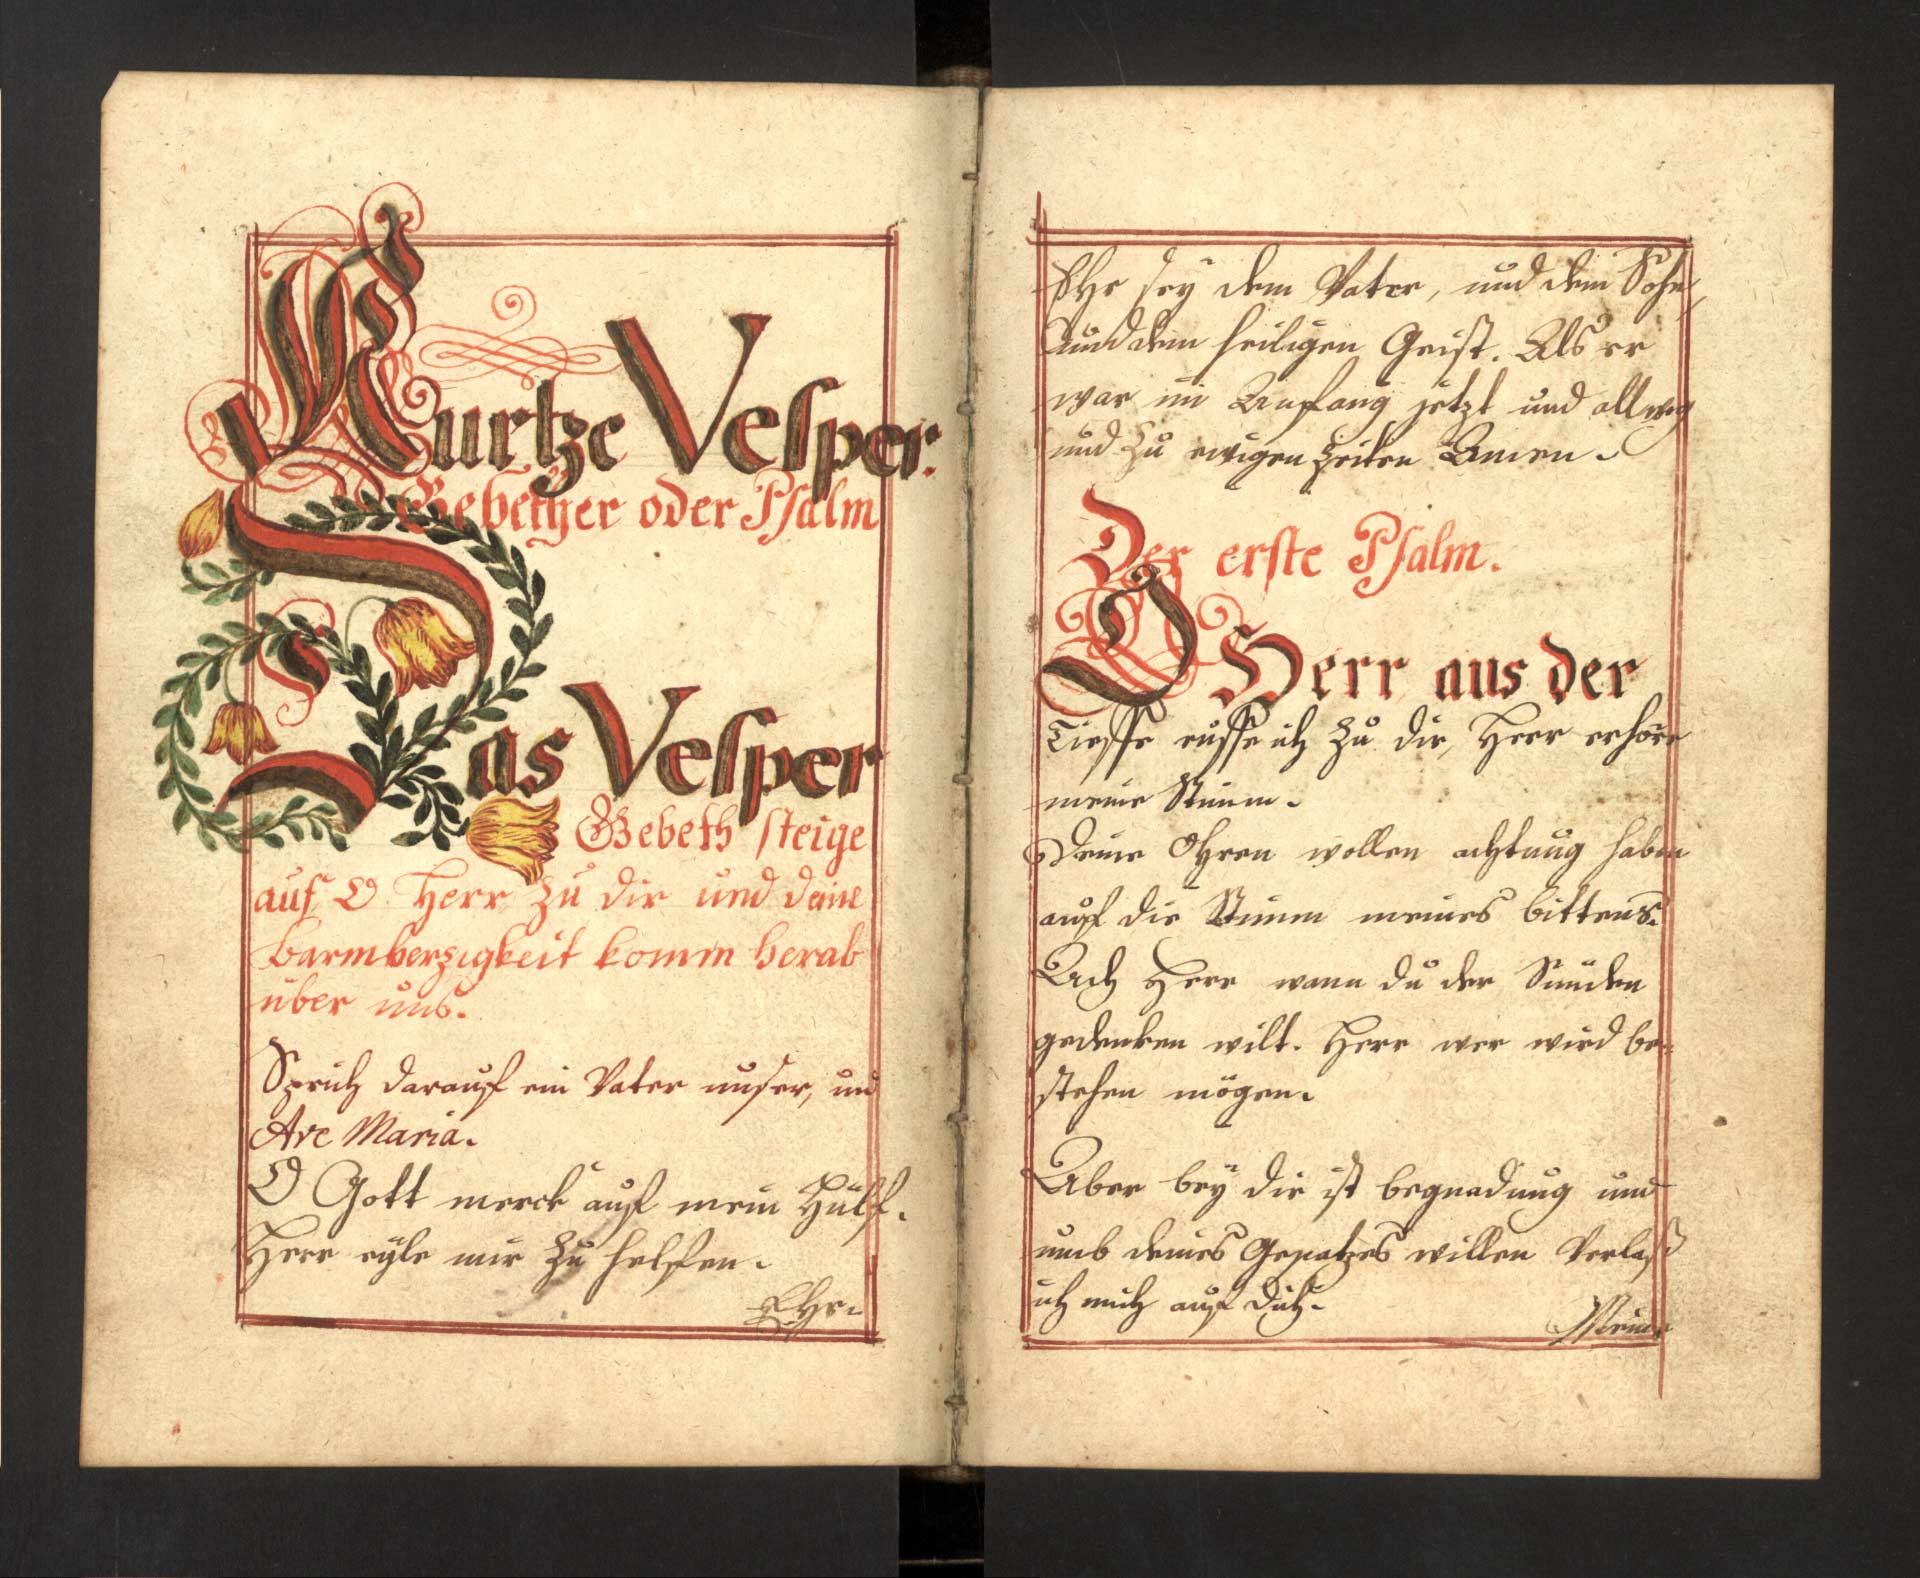 Kurtze Vesper.
Gebether oder Psalm
Das Vesper
Gebeth steige
auf O Herr zu dir und deine
barmherzigkeit komm herab
über uns.
Sprich darauf ein Vater unser, und
Ave Maria.
O Gott merck auf mein Hülff.
Herr eyle mir zu helffen.
Ehr.
Ehr sey dem Vater, und dem Sohn,
und dem heiligen Geist. Als er
war im Anfang jetzt und allweg
und zu ewigen Zeiten Amen.
Der erste Psalm.
O Herr aus der
Tieffe ruffe ich zu dir, Herr erhöre
meine Stimm.
Deine Ohren wollen achtung haben
auf die Stimm meines bittens.
Ach Herr wann du der Sünden
gedenken wilt. Herr wer wird be-
stehen mögen.
Aber bey dir ist begnadung und
umb deines Gesatzes willen Verlaß
ich mich auf dich.
Meine